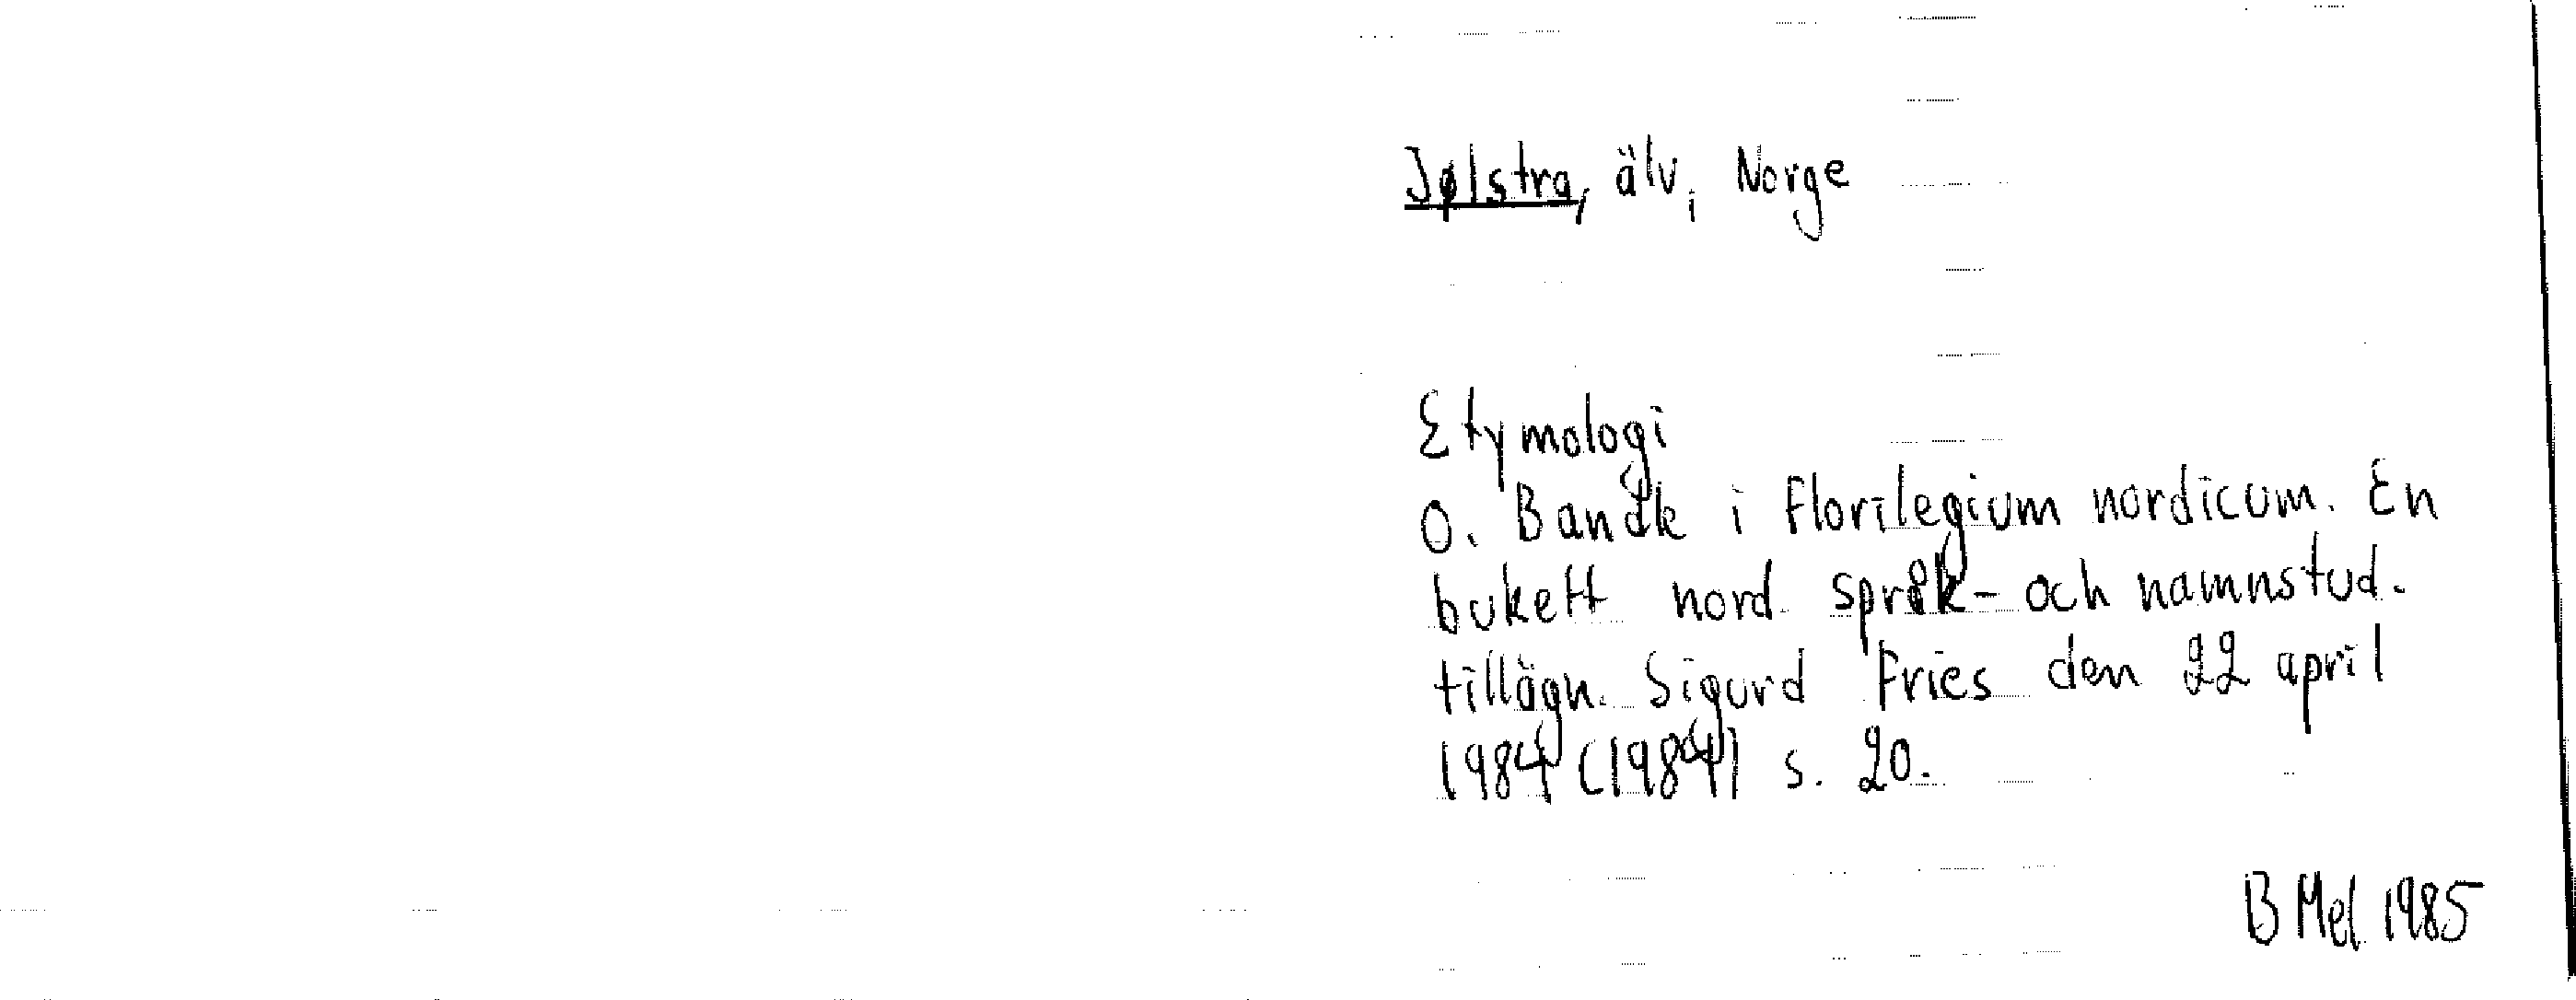 Jølstra, älv, Norge
Etymologi
O. Bandle i Florilegium nordicum. En
bukett nord. språk- och namnstud.
tillägn. Sigurd Fries den 22 april
1984 (1984) s. 20.
B Mel 1985